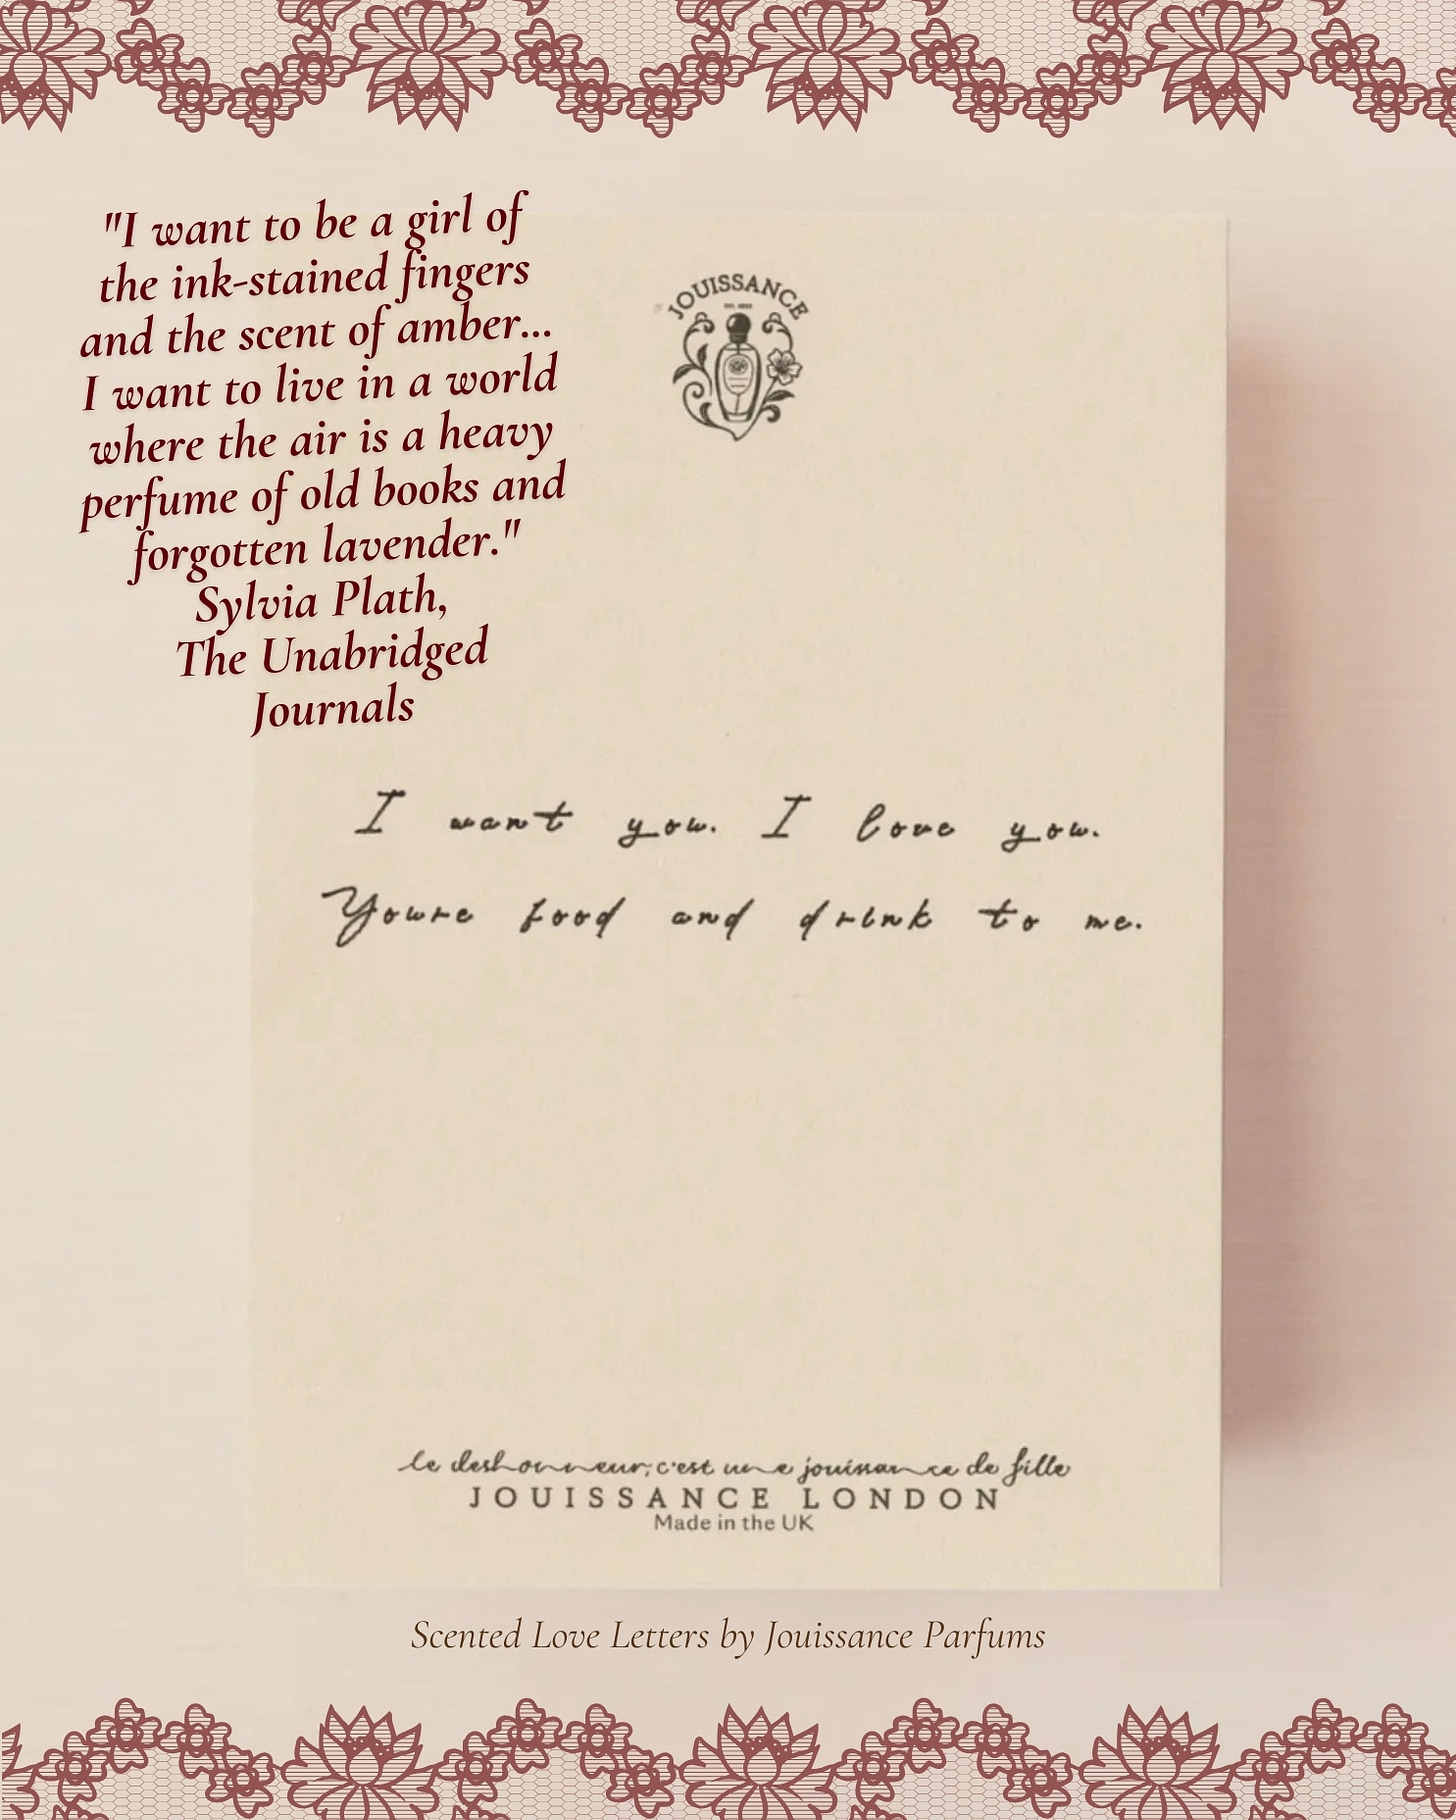 "I want to be a girl of
the ink-stained fingers
and the scent of amber...
I want to live in a world
where the air is a heavy
perfume of old books and
forgotten lavender."
Sylvia Plath,
The Unabridged
Journals
JOUISSANCE
I want you. I love you.
Youre food and drink to me.
le deshonneur, c'est une jouissance de fille
JOUISSANCE LONDON
Made in the UK
Scented Love Letters by Jouissance Parfums